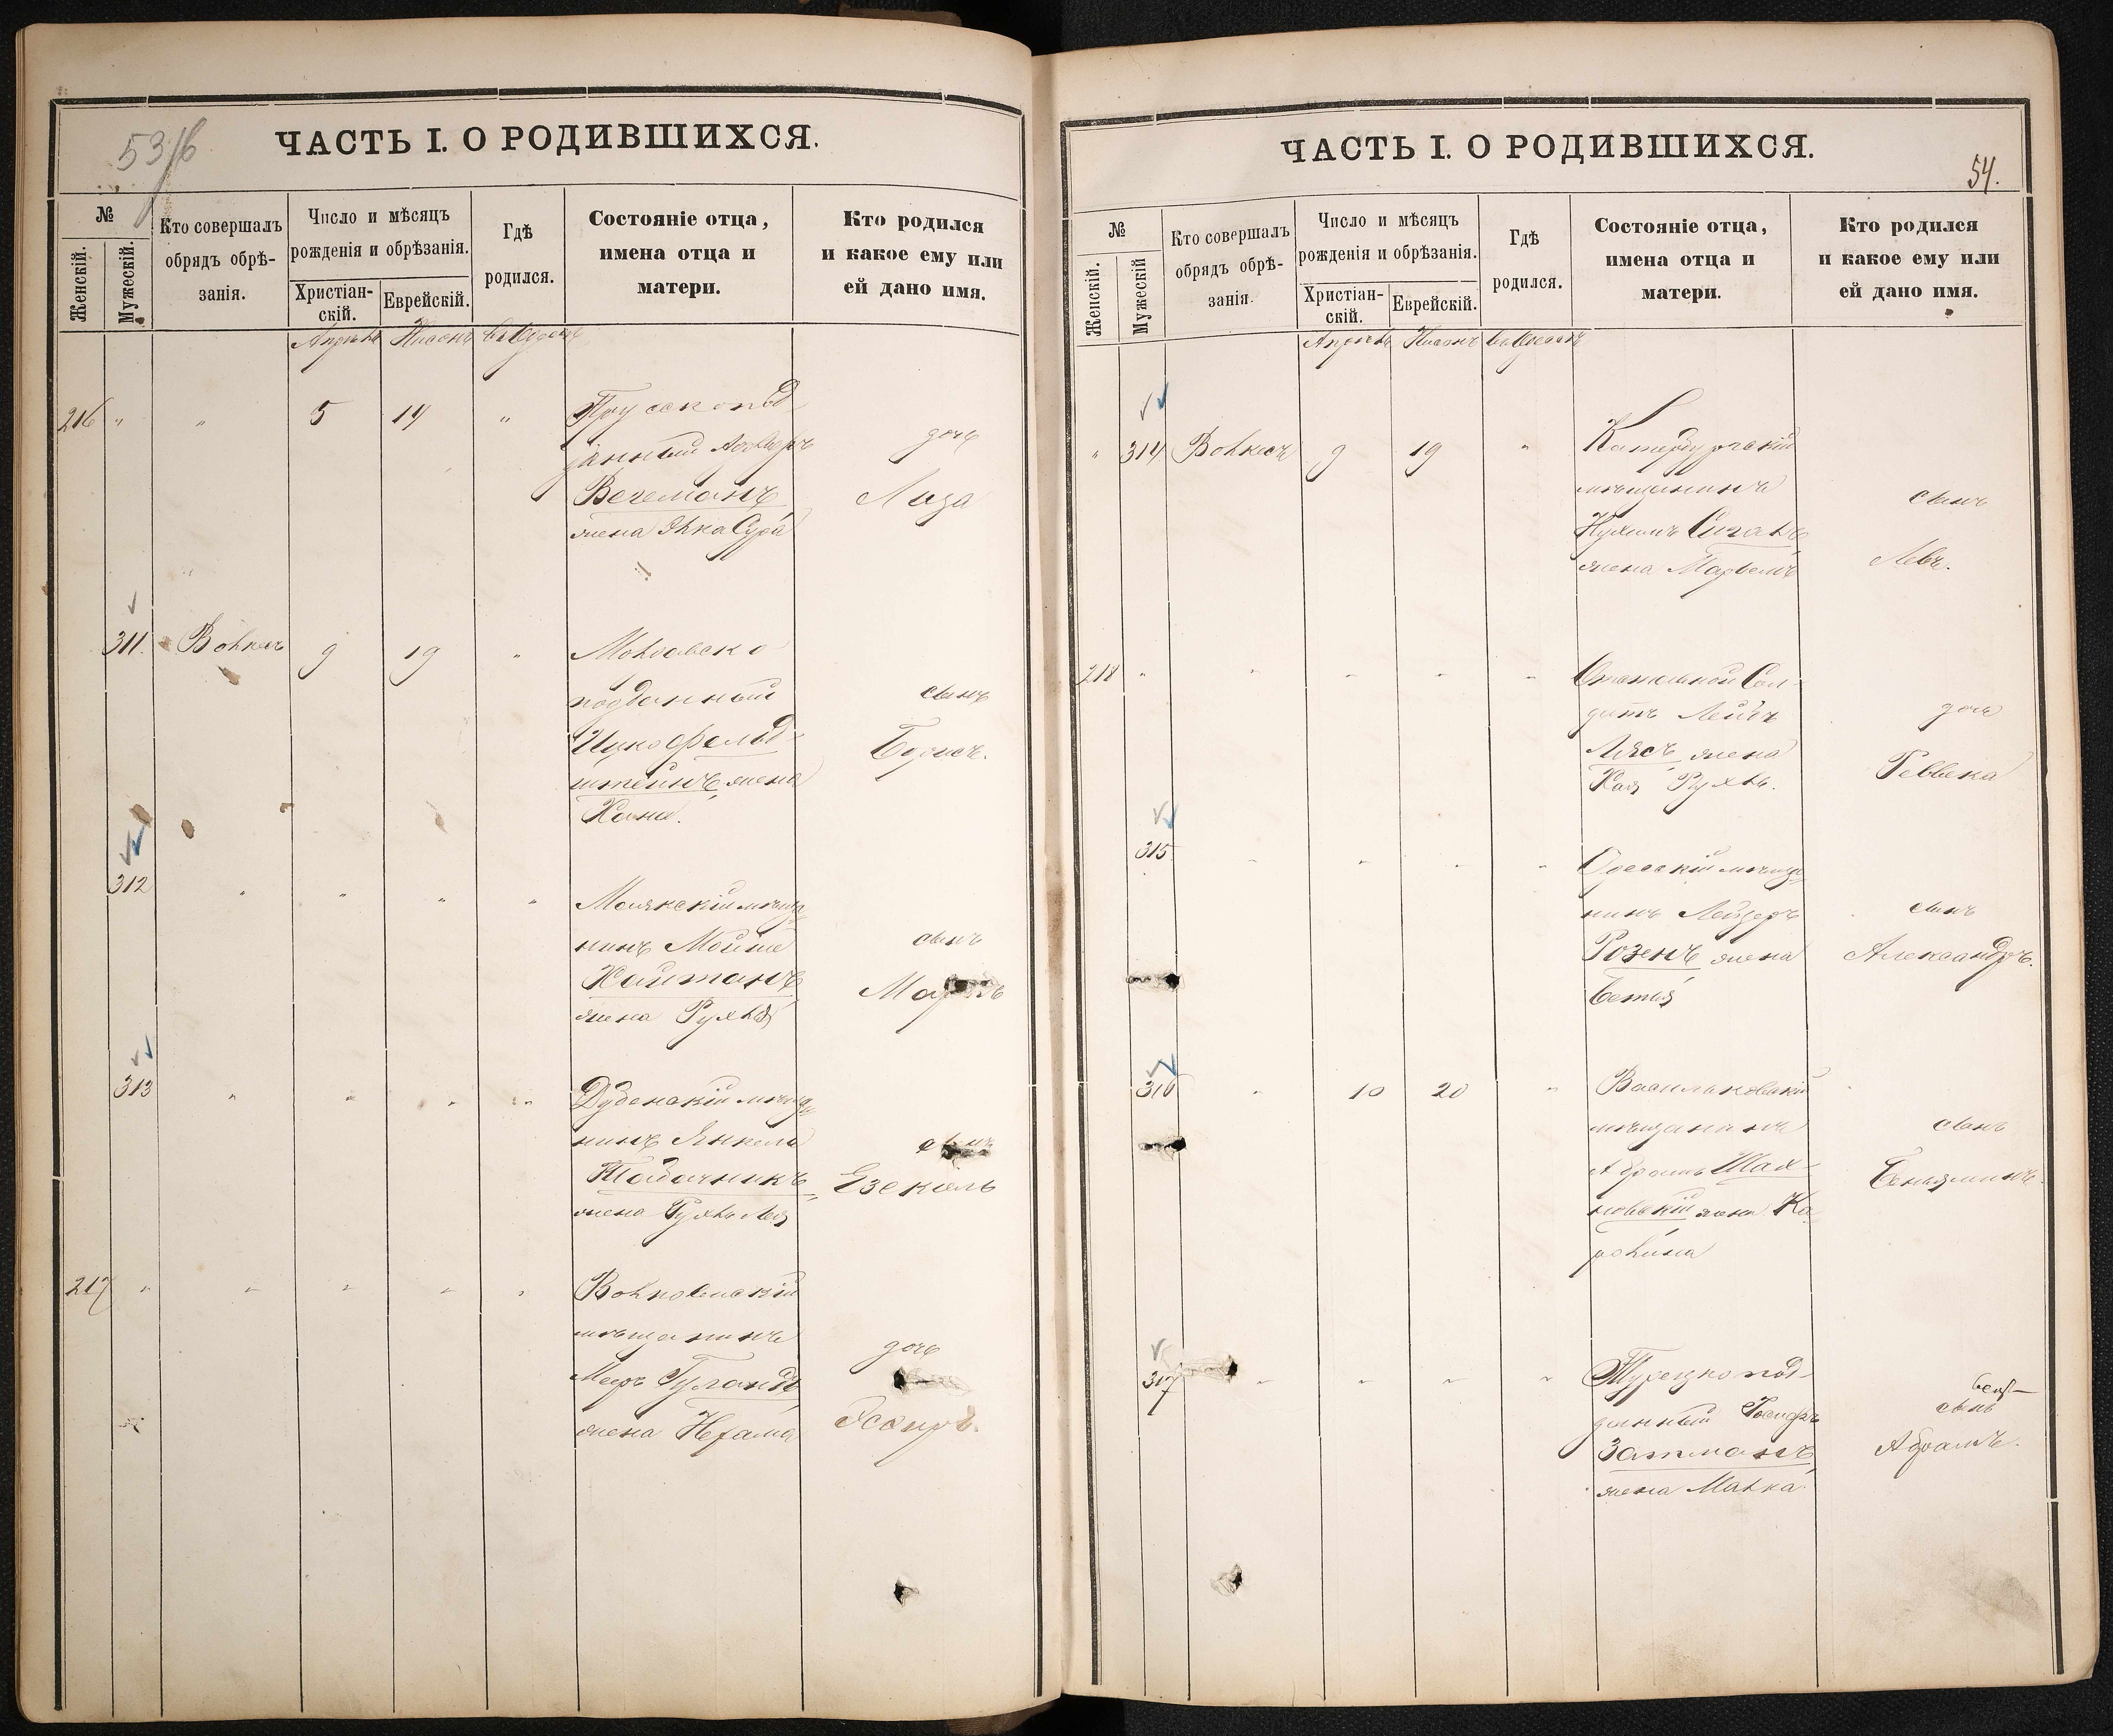 53/б
ЧАСТЬ I. О РОДИВШИХСЯ.
№
Женскій.
Мужескій.
Кто совершалъ
обрядъ обрѣ-
занія.
Число и мѣсяцъ
рожденія и обрѣзанія.
Христіан-
скій.
Еврейскій.
Гдѣ
родился.
Состояніе отца,
имена отца и
матери.
Кто родился
и какое ему или
ей дано имя.
Апрель Нисонъ въ Одессѣ
216 " " 5 14 "
Прусскопод-
данный
Вегеманъ
жена Сура
дочь
Лиза
311. 9 19 "
подданный
Ицко Фельд-
штейнъ жена
Хана.
сынъ
Борисъ.
312 " " " "
Маякскій мѣща-
нинъ Мойше
Хайтанъ
жена Рухля
сынъ
313 " " " "
Дубенскій мѣща-
нинъ Янкель
Табачникъ
жена Рухля Лея
сынъ
Езекель
217 " " " " "
мѣщанинъ
Мееръ Гуландъ
жена Нехама
дочь
ЧАСТЬ I. О РОДИВШИХСЯ.
54.
№
Женскій.
Мужескій
Кто совершалъ
обрядъ обрѣ-
занія.
Число и мѣсяцъ
рожденія и обрѣзанія.
Христіан-
скій.
Еврейскій.
Гдѣ
родился.
Состояніе отца,
имена отца и
матери.
Кто родился
и какое ему или
ей дано имя.
Апрель Нисонъ въ Одессѣ
" 314 9 19 "
Катербургскій
мѣщанинъ
Нухимъ Сигалъ
жена
сынъ
Левъ.
218 " " " " "
Сол-
датъ Лейбъ
Лясъ жена
Хая Рухль.
дочь
Реввека
315 " " " "
Одесскій мѣща-
нинъ Лейзеръ
Розенъ жена
Бетя
сынъ
Александръ.
316 " 10 20 "
Васильковскій
мѣщанинъ
Абрамъ Шах-
новскій жена Ка-
ролина
сынъ
Беньяминъ.
317 " " " "
Турецкопод-
данный Іосифъ
Затманъ
жена Малка
сынъ
Абрамъ.